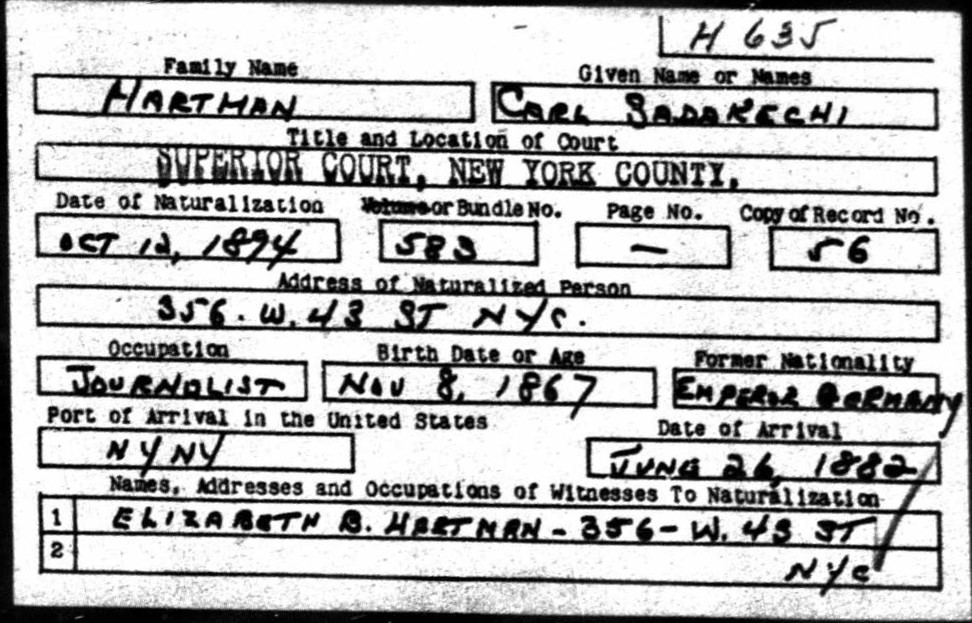 H 635
Family Name Given Name or Names
HARTMAN CARL SADAKECHI
Title and Location of Court
SUPERIOR COURT, NEW YORK COUNTY.
Date of Naturalization Volume or Bundle No. Page No. Copy of Record No.
OCT 12, 1894 583 — 56
Address of Naturalized Person
356. W. 43 ST NYC.
Occupation Birth Date or Age Former Nationality
JOURNALIST NOV 8, 1867 EMPEROR GERMANY
Port of Arrival in the United States Date of Arrival
NYNY JUNE 26, 1882
Names, Addresses and Occupations of Witnesses To Naturalization
1 ELIZABETH B. HARTMAN - 356 - W. 43 ST
2 NYC